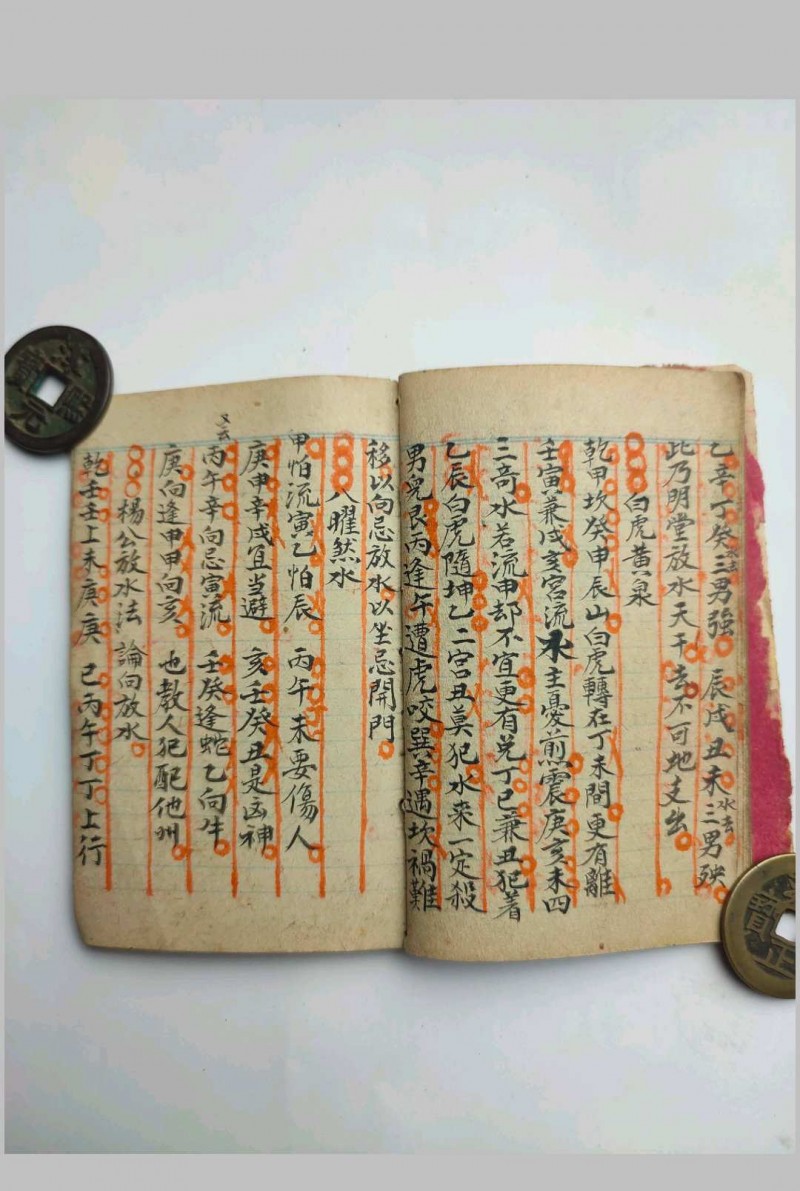 乙辛丁癸水去三男強 辰戌丑未水去三男殃
此乃明堂放水天干去不可地支出
白虎黄泉
乾甲坎癸申辰山白虎轉在丁未間更有離
壬寅兼戌亥宮流水主憂煎震庚亥未四
三奇水若流申却不宜更有兌丁巳兼丑犯着
乙辰白虎隨坤乙二宮丑莫犯水来一定殺
男兒艮丙逢午遭虎咬巽辛遇坎禍難
移以向忌放水以坐忌開門
八曜然水
甲怕流寅乙怕辰 丙午未要傷人
庚申辛戌宜当避 亥壬癸丑是凶神
又云
丙午辛向忌寅流 壬癸逢蛇乙向牛
庚向逢甲甲向亥 也教人犯配他州
楊公放水法 論向放水
乾壬壬上未庚庚 巳丙午丁丁上行
元